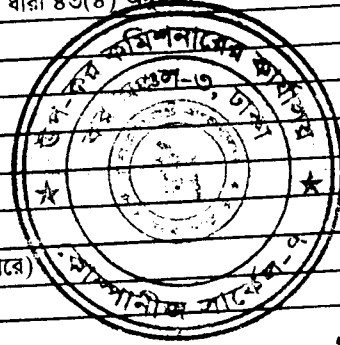 ধারা ৪৩(৪)
উপ-কর কমিশনারের কার্যালয়
কর অঞ্চল-৩, ঢাকা
কোম্পানীজ সার্কেল-৭
রে)